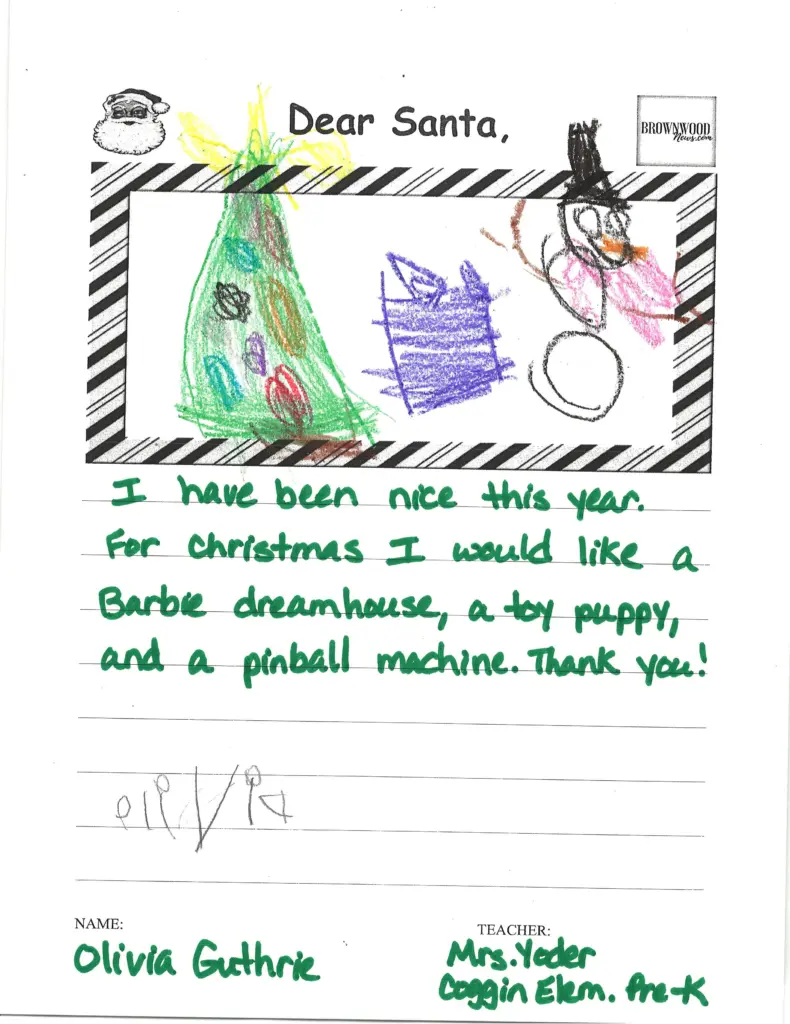 Dear Santa,
BROWNWOOD
News.com
I have been nice this year.
For Christmas I would like a
Barbie dreamhouse, a toy puppy,
and a pinball machine. Thank you!
olivia
NAME:
TEACHER:
Olivia Guthrie
Mrs. Yoder
Coggin Elem. Pre-K